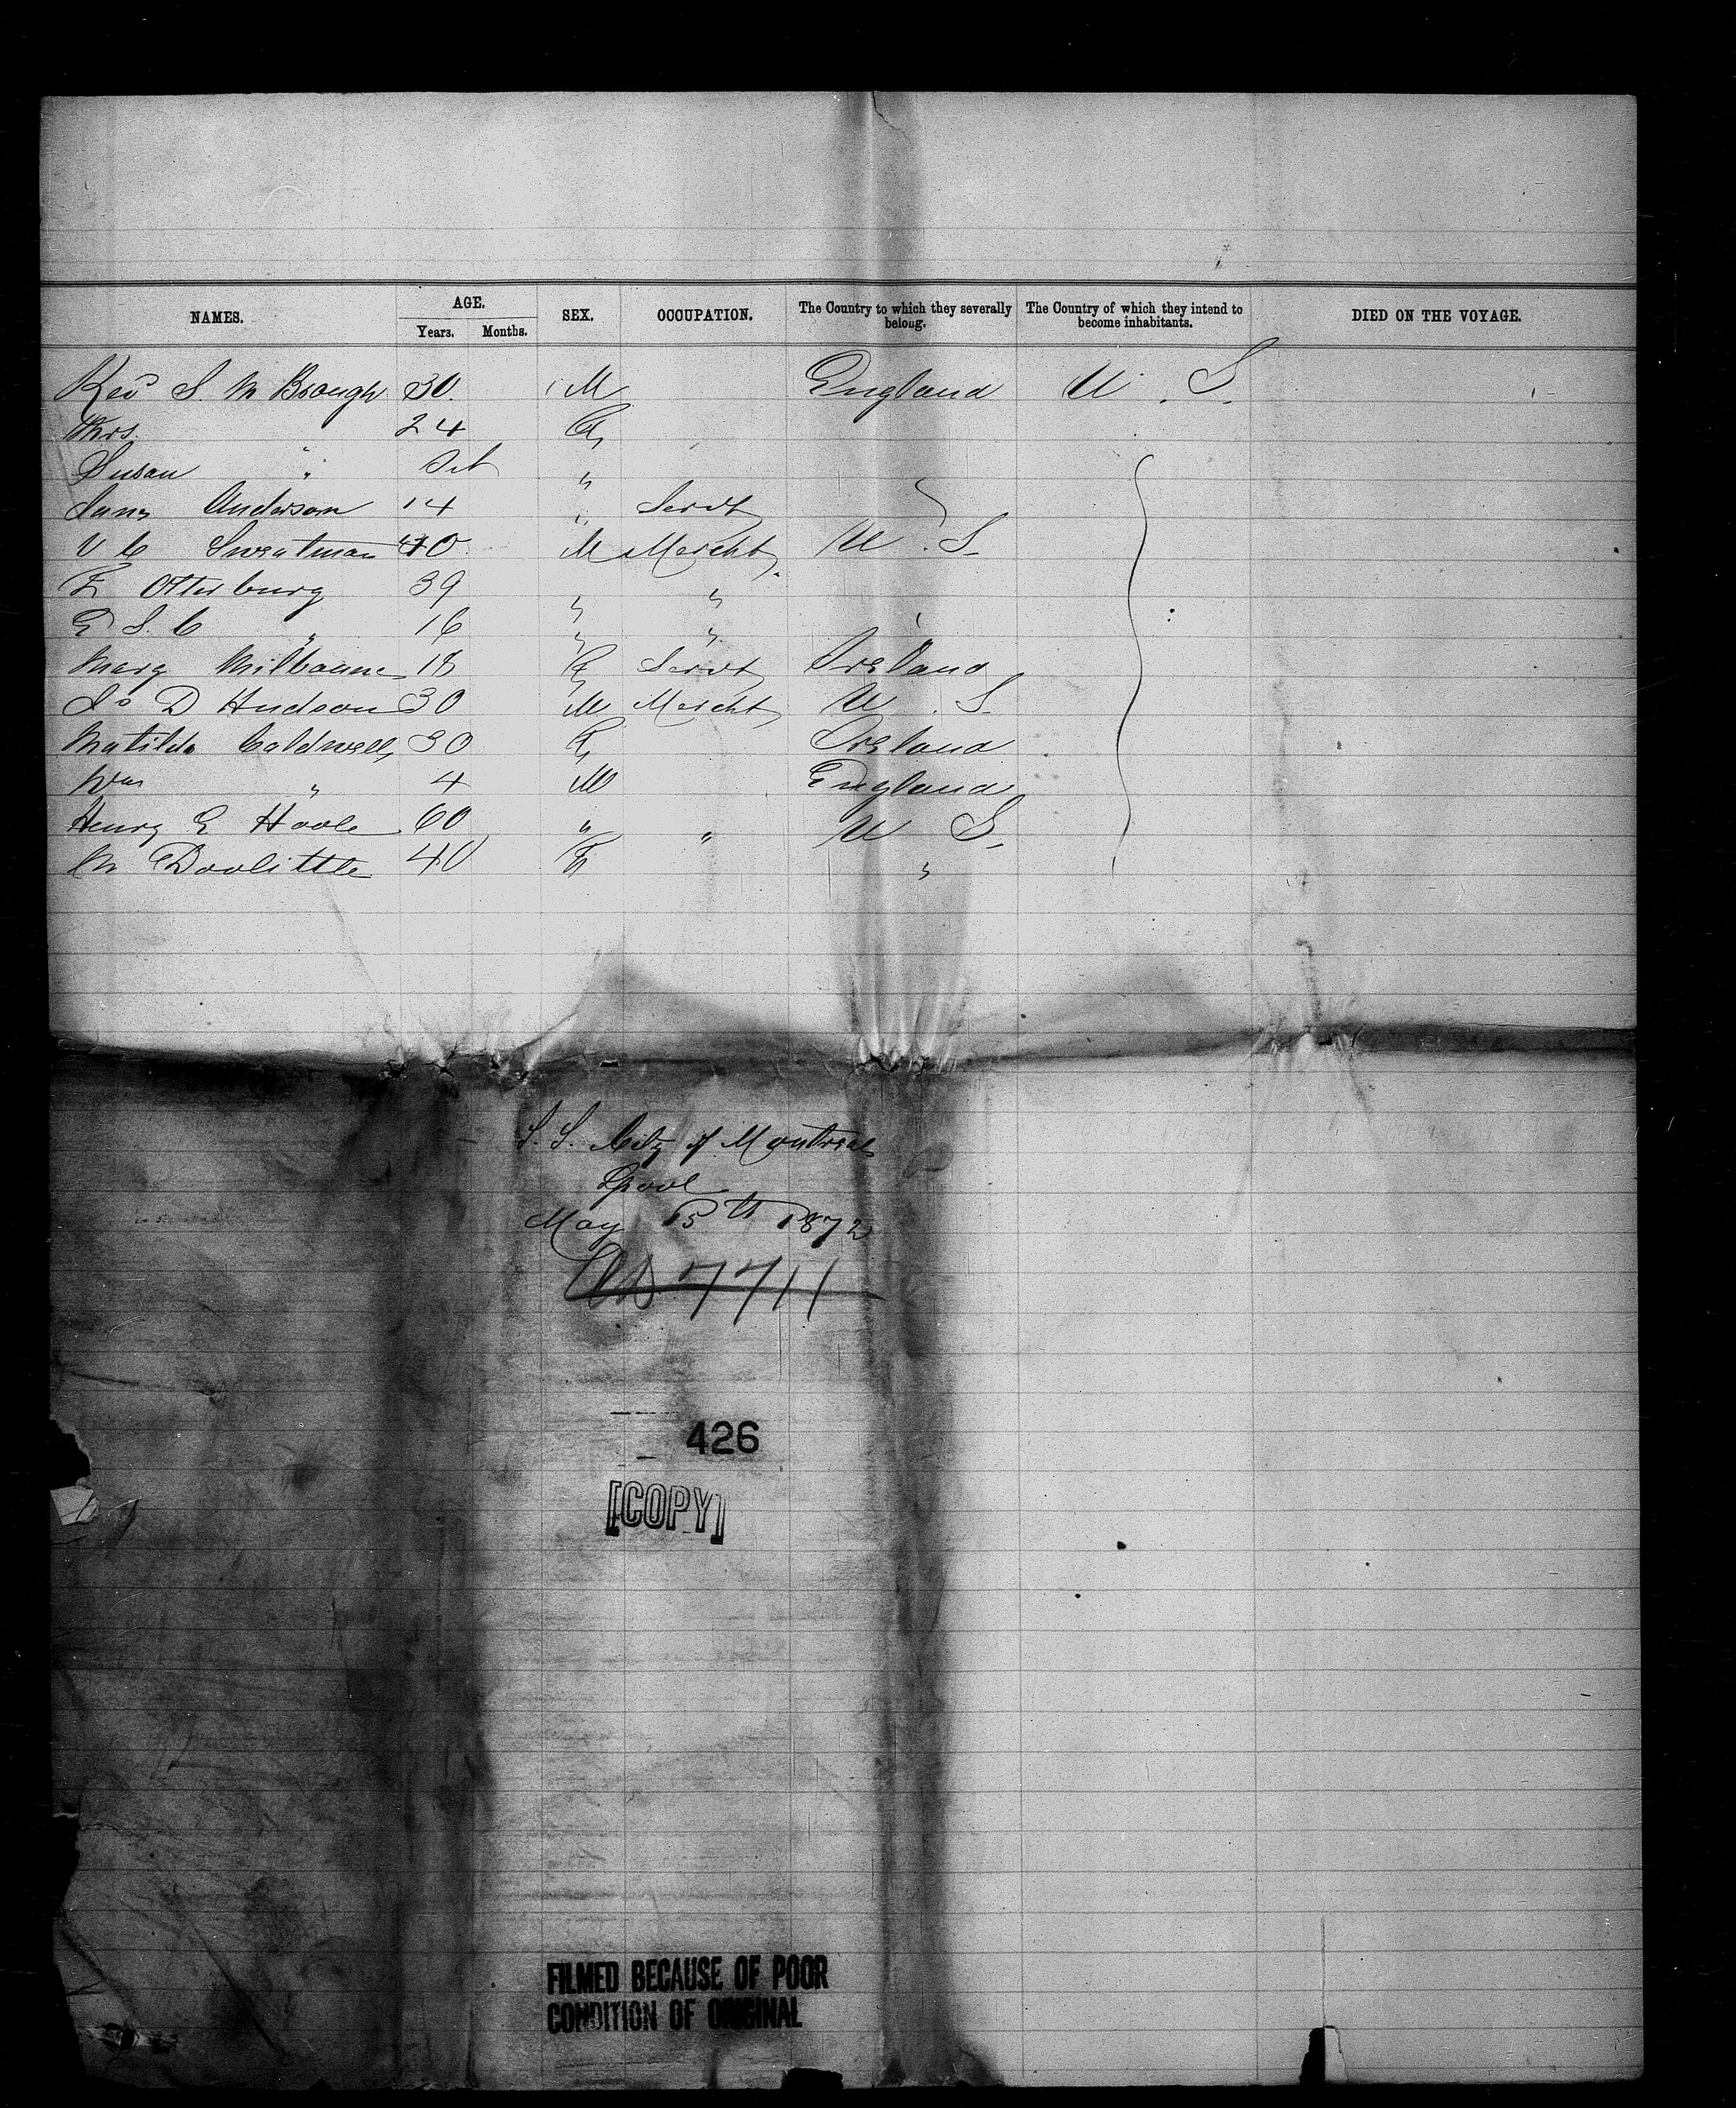 NAMES. AGE. SEX. OCCUPATION. The Country to which they severally belong. The Country of which they intend to become inhabitants. DIED ON THE VOYAGE.
Years. Months.
Revd S. M Brough 30. M England U. S.
Mrs. 24 F
Susan " Inft "
Jane Anderson 14 " Servt
V C Sweatman 40 M Mercht U. S.
E Otterburg 39 " "
E S. C " 16 " "
Mary Milbourne 18 F Servt Ireland
Js D Hudson 30 M Mercht U. S.
Matilda Caldwell 30 F Ireland
Wm " 4 M England
Henry E Hoole 60 " " U S.
M Doolittle 40 F "
S. S. City of Montreal
Lpool
May 15th 1872
7711
426
[COPY]
FILMED BECAUSE OF POOR
CONDITION OF ORIGINAL